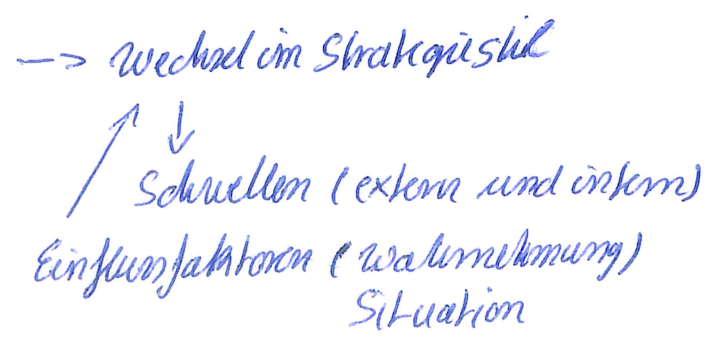 → Wechsel im Strategiestil
↓
Schwellen (extern und intern)
Einflussfaktoren (Wahrnehmung)
Situation